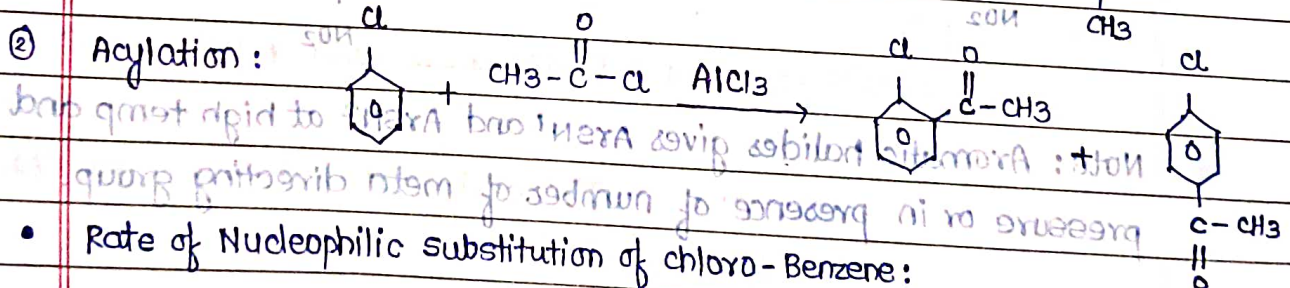 CH3
② Acylation :
Cl + CH3-C-Cl AlCl3 → Cl C-CH3 Cl
O O
C-CH3
O
• Rate of Nucleophilic substitution of chloro-Benzene :